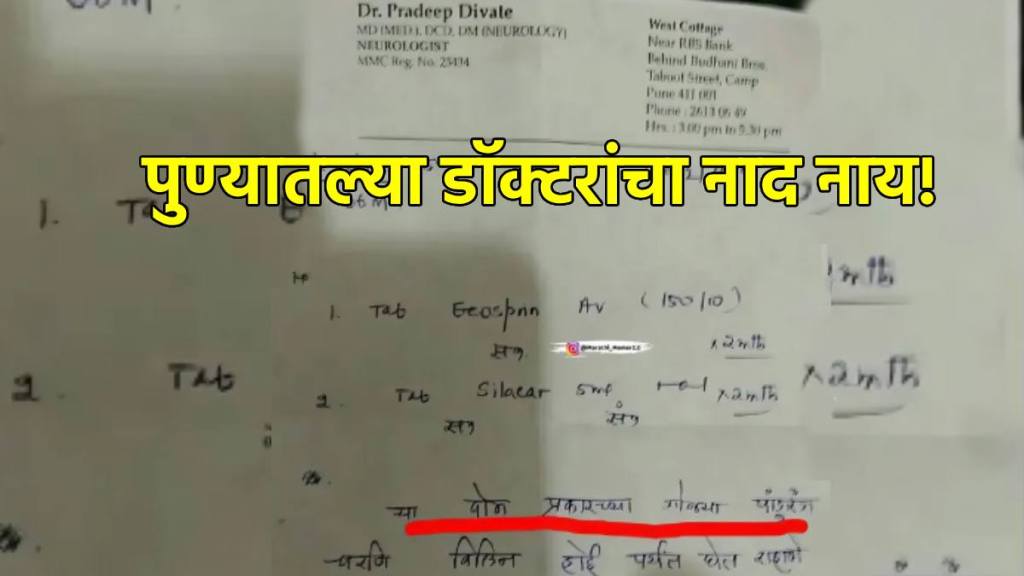 Dr. Pradeep Divale
MD (MED.), DCD, DM (NEUROLOGY)
NEUROLOGIST
MMC Reg. No. 25434
West Cottage
Near RBS Bank
Behind Budhani Bros.
Taboot Street, Camp
Pune 411 001
Phone : 2613 06 49
Hrs. : 3.00 pm to 5.30 pm
पुण्यातल्या डॉक्टरांचा नाद नाय!
1. Tab
1. Tab Ecosprin AV (150/10)
x 2 mth
2. Tab
x 2 mth
2. Tab Silacar 5mg x 2 mth
या दोन प्रकारच्या गोळ्या पांडुरंग
चरणि विलिन होई पर्यंत घेत राहाणे